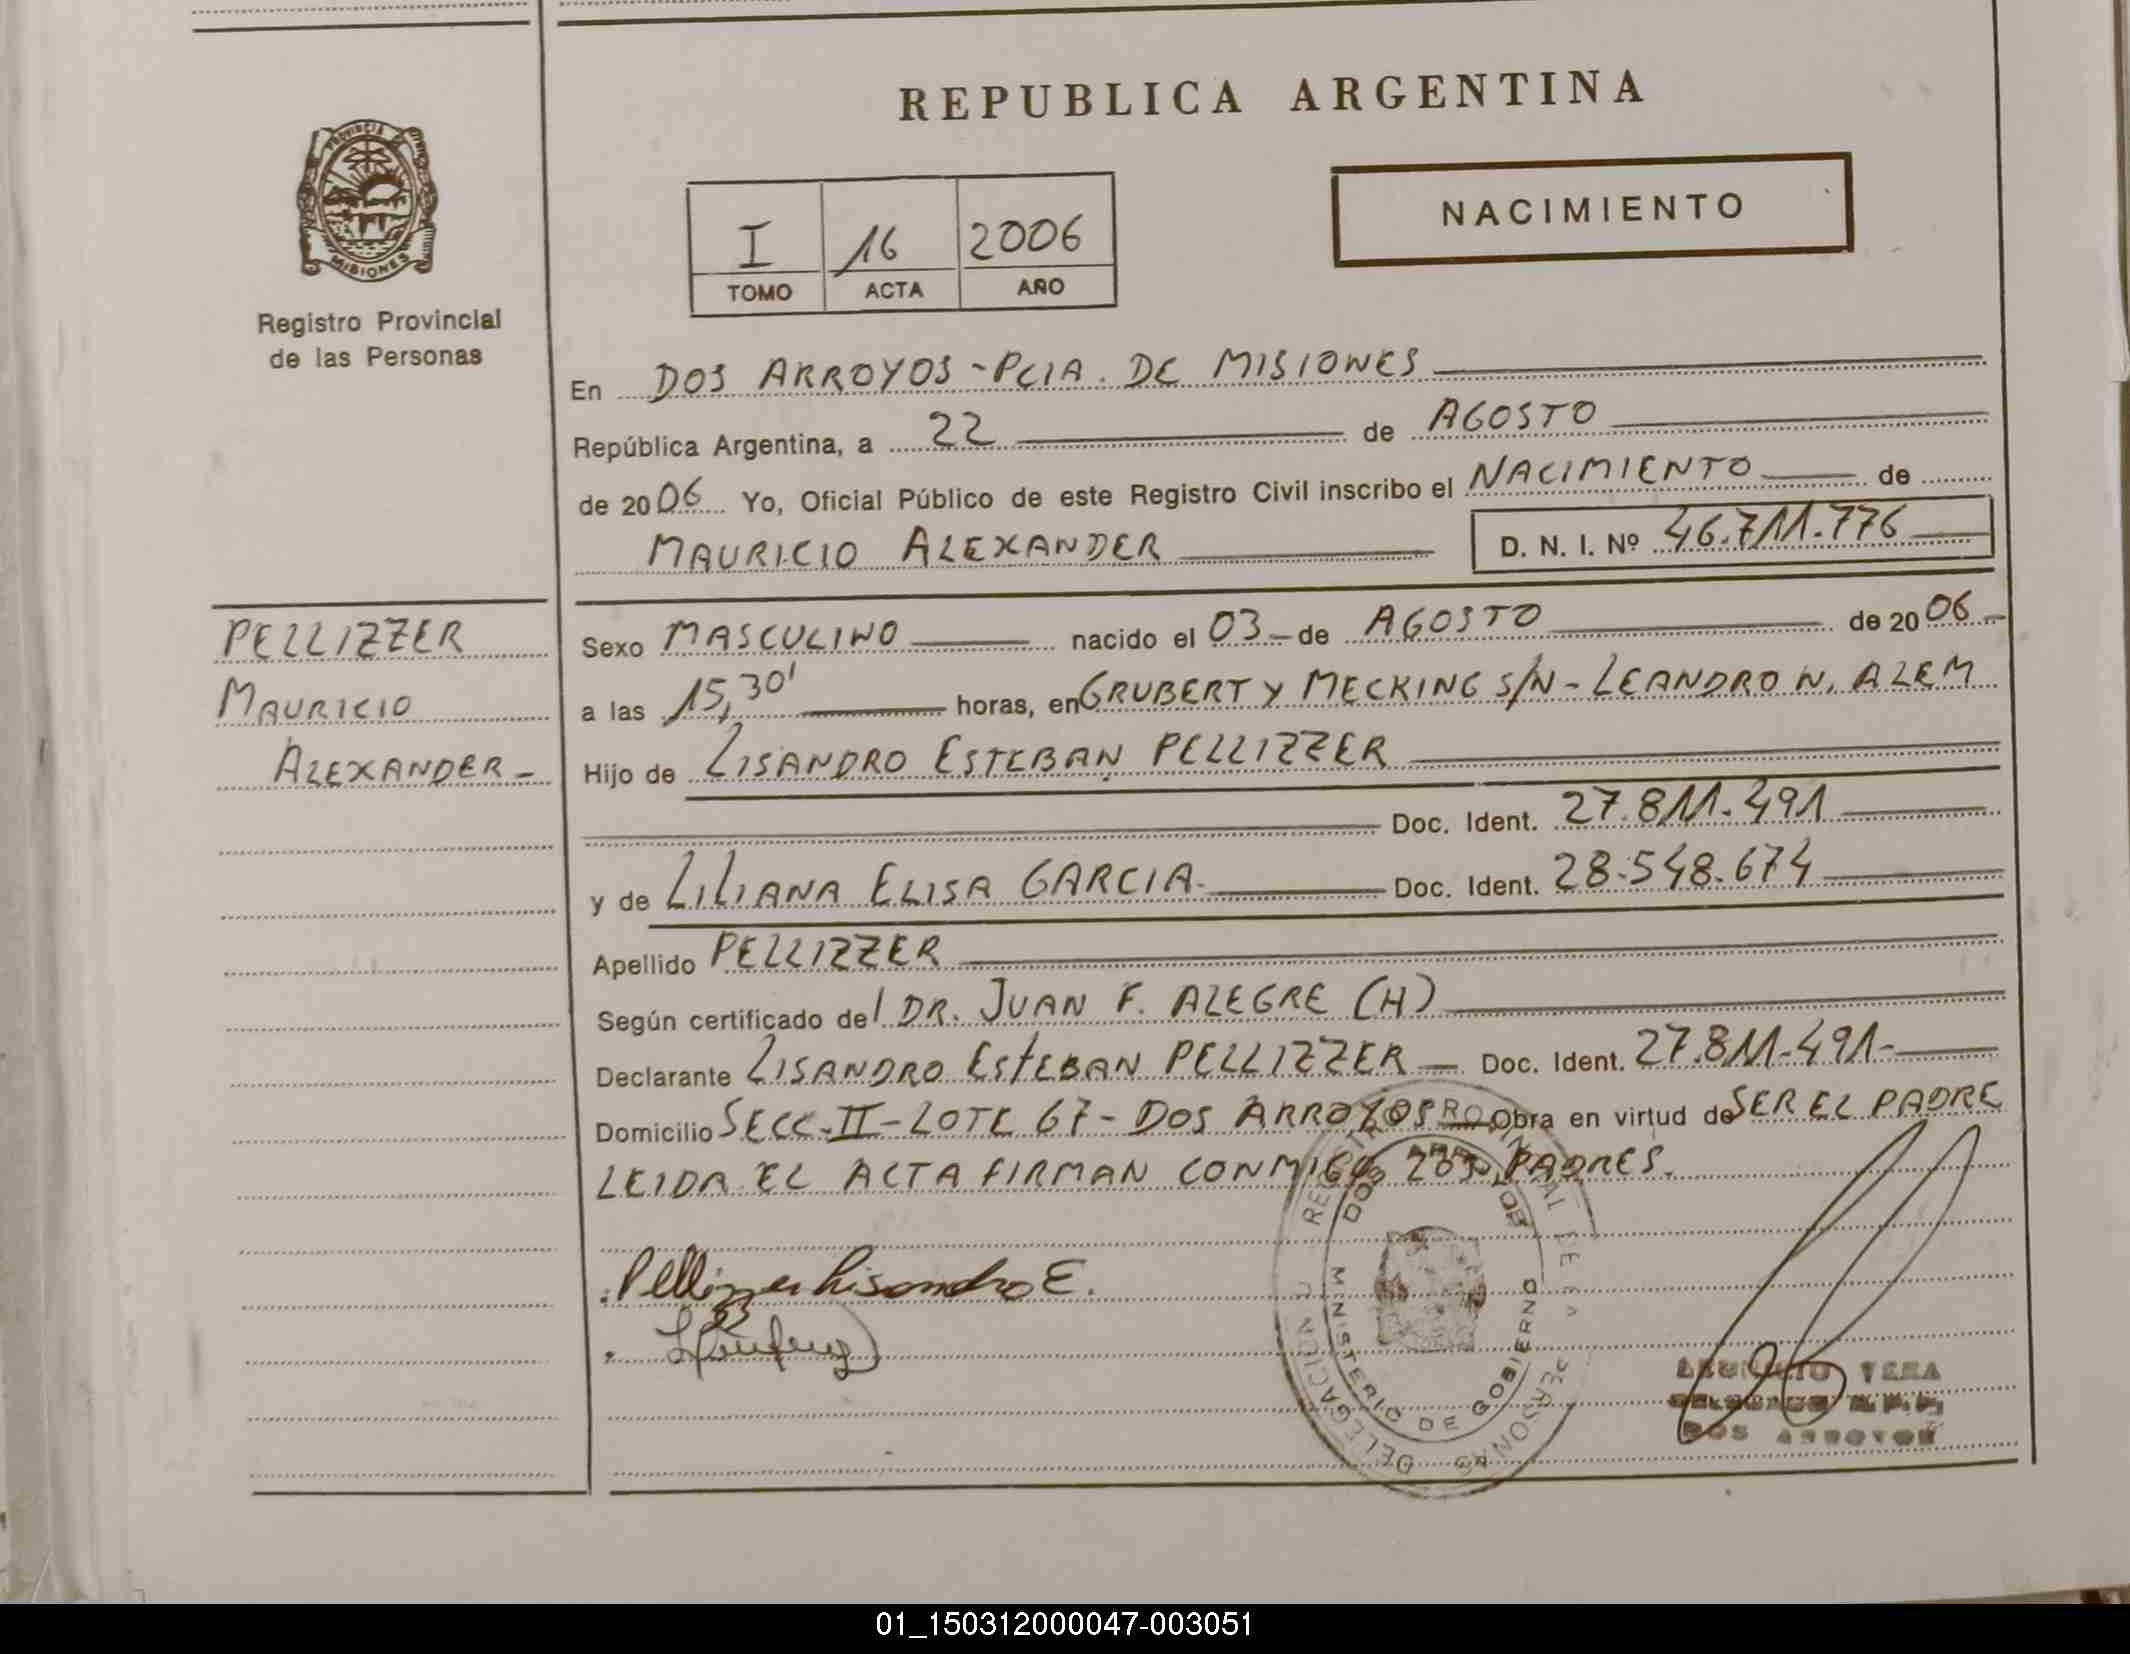 REPUBLICA ARGENTINA
PROVINCIA DE
MISIONES
Registro Provincial
de las Personas
I 16 2006
TOMO ACTA AÑO
NACIMIENTO
En DOS ARROYOS - PCIA. DE MISIONES
República Argentina, a 22 de AGOSTO
de 2006 Yo, Oficial Público de este Registro Civil inscribo el NACIMIENTO de
MAURICIO ALEXANDER D. N. I. Nº 46.711.776
PELLIZZER
MAURICIO
ALEXANDER-
Sexo MASCULINO nacido el 03 de AGOSTO de 2006
a las 15,30' horas, en GRUBERT Y MECKING S/N - LEANDRO N. ALEM
Hijo de LISANDRO ESTEBAN PELLIZZER
Doc. Ident. 27.811.491
y de LILIANA ELISA GARCIA Doc. Ident. 28.548.674
Apellido PELLIZZER
Según certificado del DR. JUAN F. ALEGRE (H)
Declarante LISANDRO ESTEBAN PELLIZZER Doc. Ident. 27.811.491-
Domicilio SECC. II - LOTE 67 - DOS ARROYOS Obra en virtud de SER EL PADRE
LEIDA EL ACTA FIRMAN CONMIGO LOS PADRES.
Pellizzer Lisandro E.
REGISTRO PROVINCIAL DE LAS PERSONAS
DELEGACION
DOS ARROYOS
MINISTERIO DE GOBIERNO
VERA
DOS ARROYOS
01_150312000047-003051